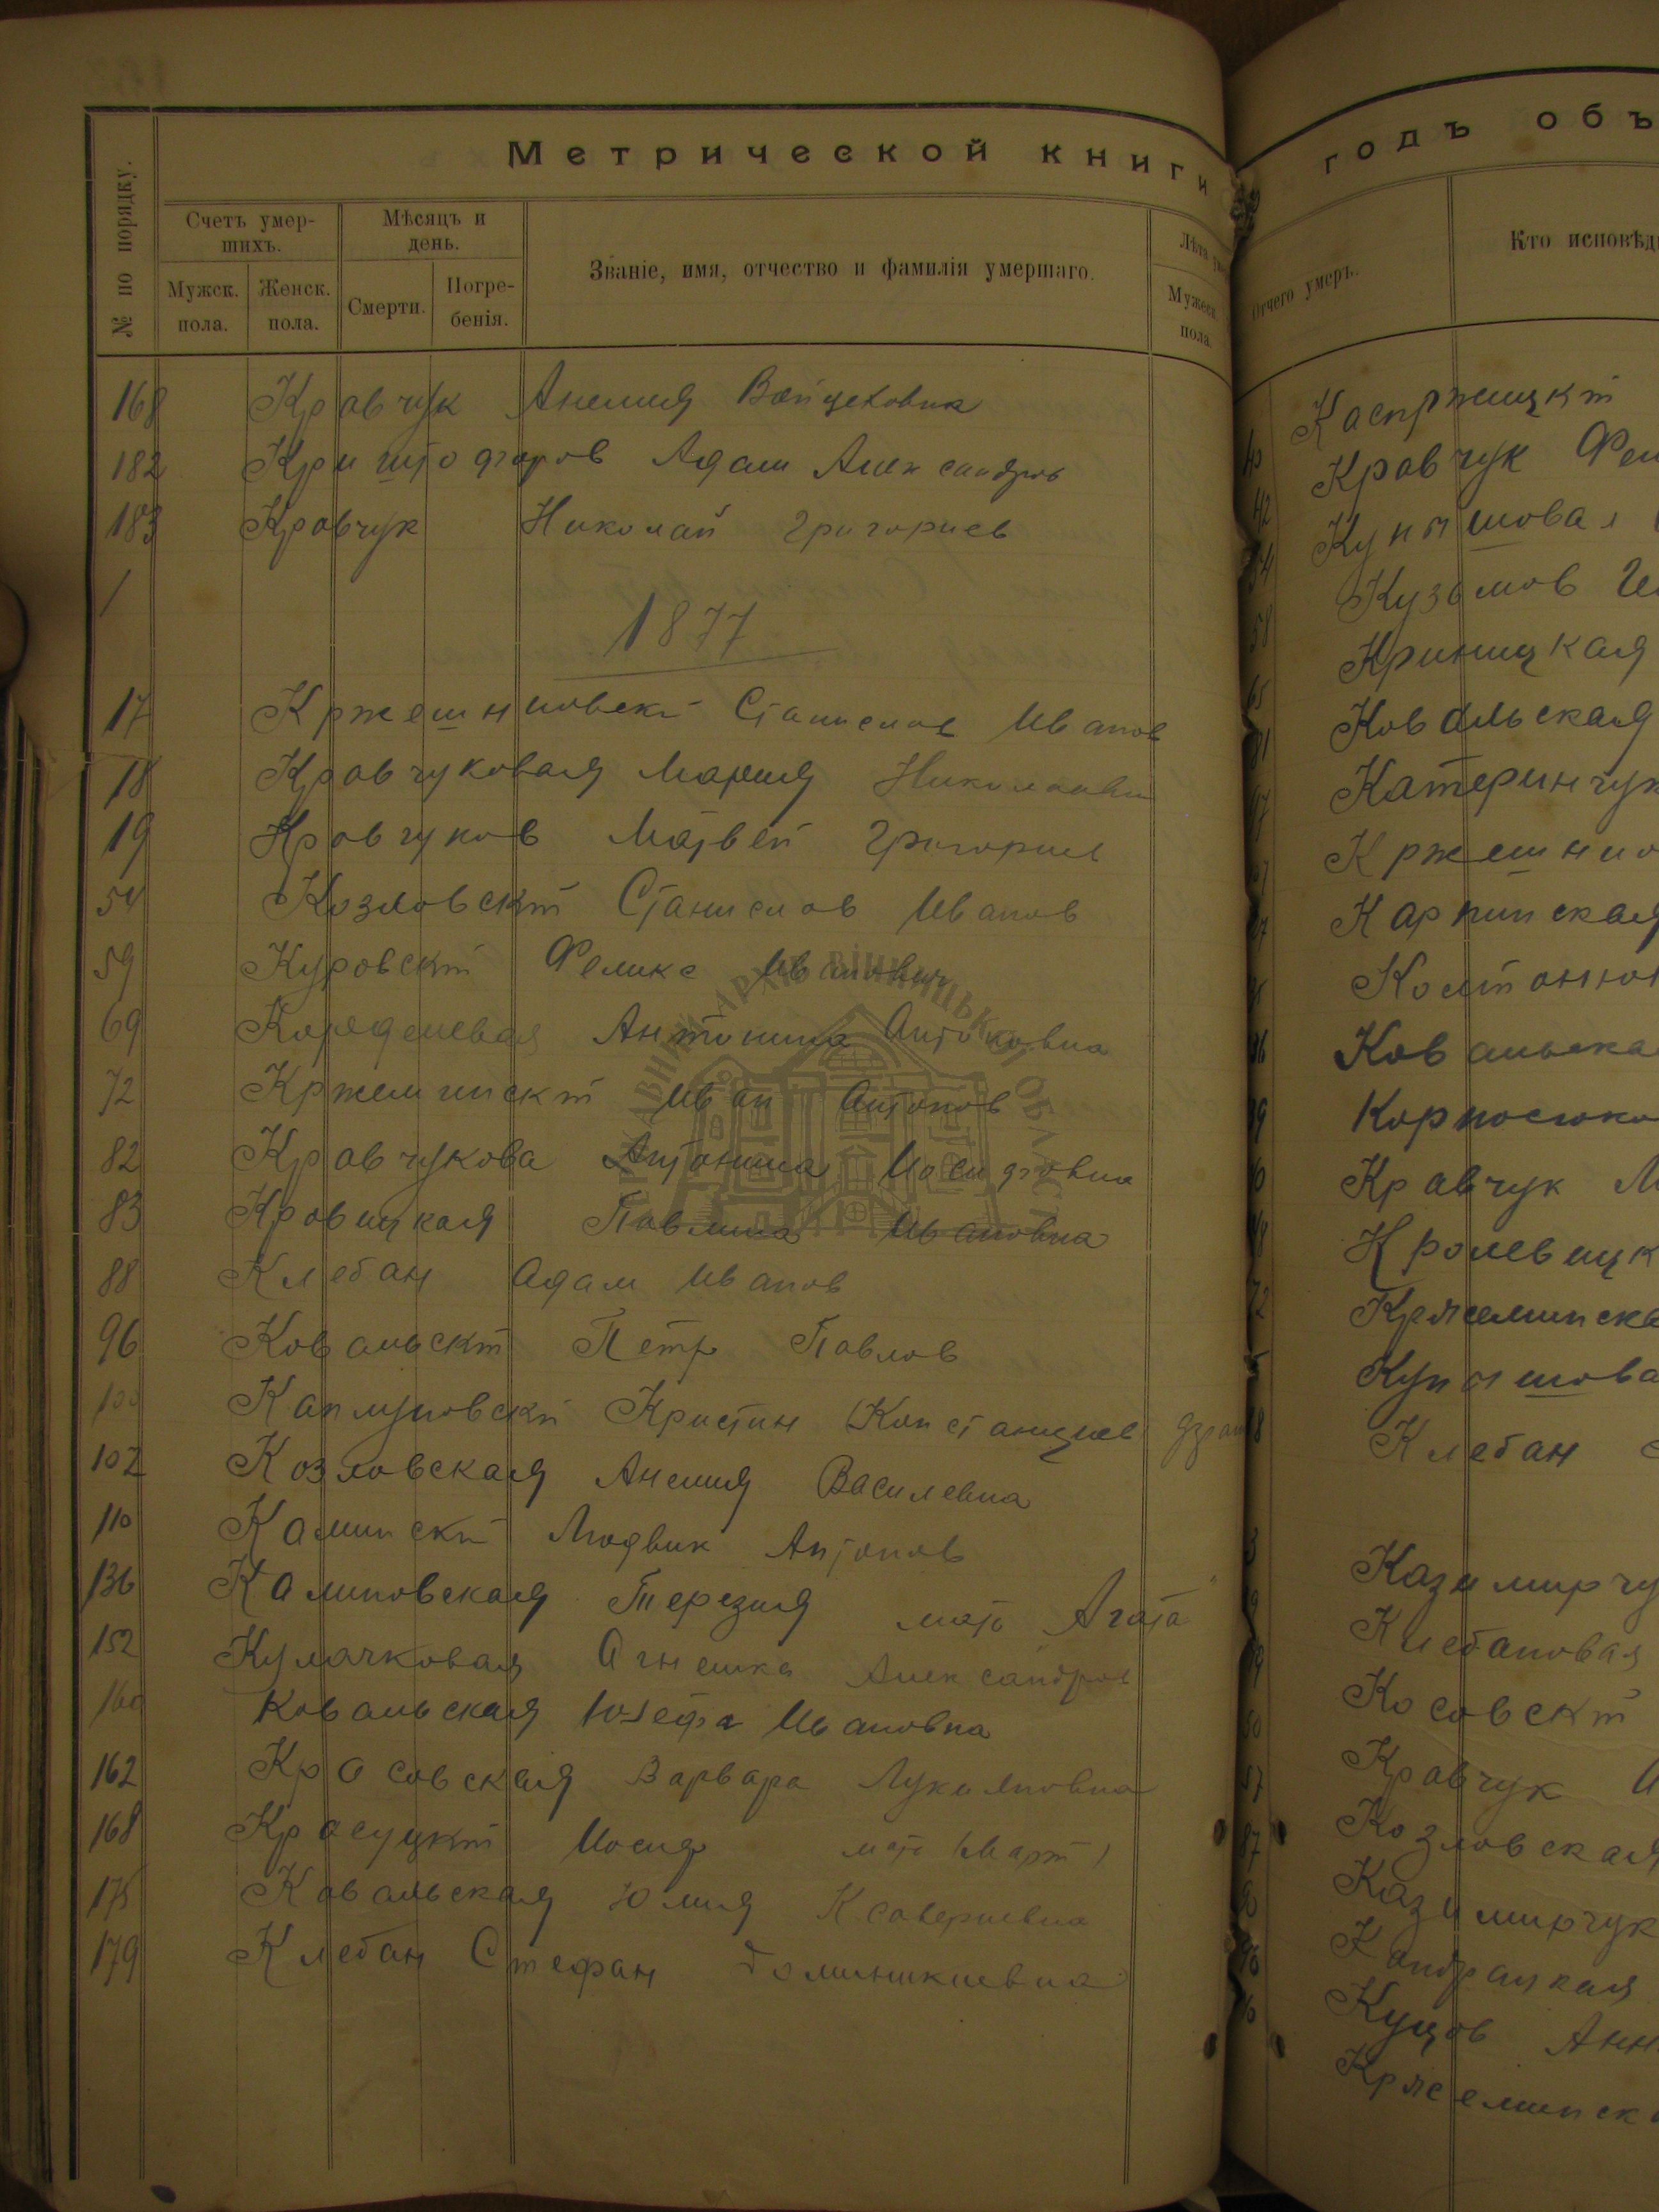 Метрической книги
№ по порядку.
Счетъ умер-
шихъ.
Мужск.
пола.
Женск.
пола.
Мѣсяцъ и
день.
Смерти.
Погре-
бенія.
Званіе, имя, отчество и фамилія умершаго.
Лѣта
Мужеск.
пола.
168 Кравчук Анелия Войцеховна
182 Криштофоров Адам Александров
183 Кравчук Николай Григориев
1877
17 Станислав Иванов
18 Кравчуковая Мария
19 Кравчуков Матвей Григориев
54 Козловскій Станислав Иванов
59 Куровскій Феликс Иванович
69 Антонина Антоновна
72 Иван Антонов
82 Кравчукова Антонина Иосифовна
83 Кровицкая Павлина Ивановна
88 Клебан Адам Иванов
96 Ковальскій Петр Павлов
100 Каплуновскій Кристин Констанциев
102 Козловская Анелия Василевна
110 Каминскій Людвик Антонов
136 Терезия мать Агата
152 Кулачковая Агнешка Александров
160 Ковальская Юзефа Ивановна
162 Красовская Варвара Лукаяновна
168 Красуцкій Иосиф мать (Март)
175 Ковальская Юлия Ксавериевна
179 Клебан Стефан Доминикиевна
годъ объ
Отчего умеръ.
Кто исповѣд
Каспржицкій
Кравчук Фел
Купчишовая
Кузьмов
Криницкая
Ковальская
Катеринчук
Карпинская
Ковальска
Кравчук
Кролевицк
Клебан
Казимирчу
Клебановая
Косовскій
Кравчук
Козловская
Казимирчук
Кондрацкая
Куцов Анн